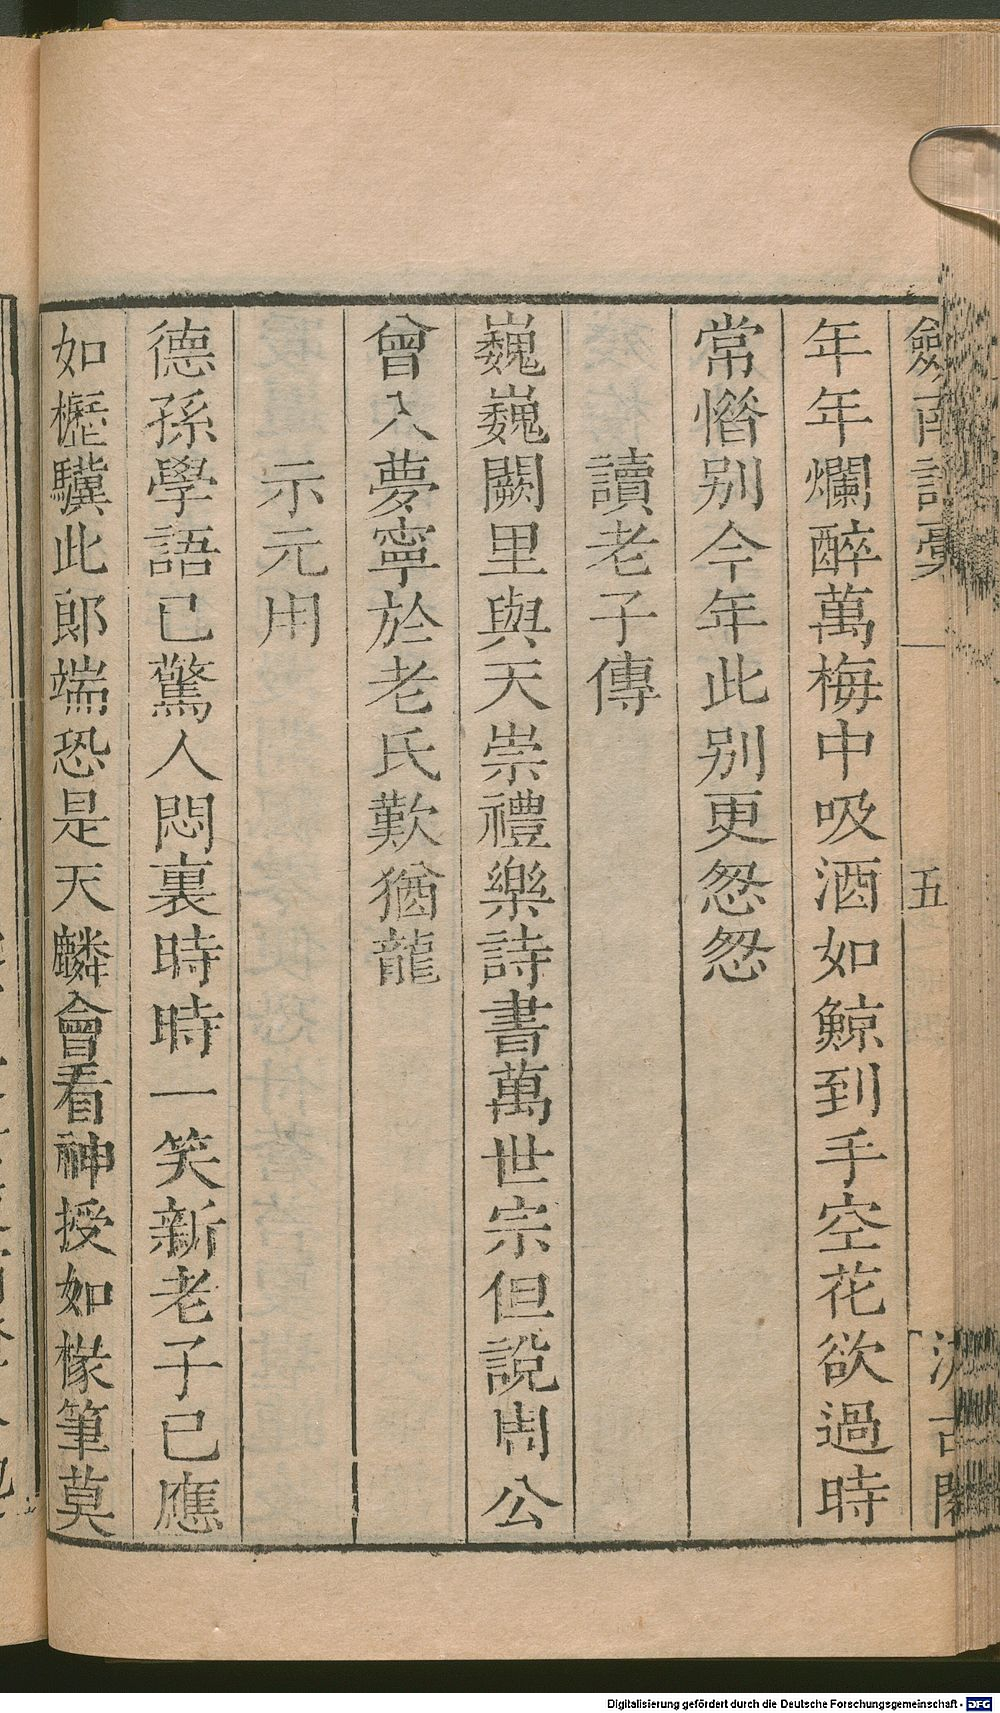 劒南詩稾 五 汲古閣
年年爛醉萬梅中吸酒如鯨到手空花欲過時
常惜别今年此别更怱怱
讀老子傳
巍巍闕里與天崇禮樂詩書萬世宗但說周公
曾入夢寧於老氏歎猶龍
示元用
德孫學語已驚人悶裏時時一笑新老子已應
如櫪驥此郎端恐是天麟會看神授如椽筆莫
Digitalisierung gefördert durch die Deutsche Forschungsgemeinschaft - DFG